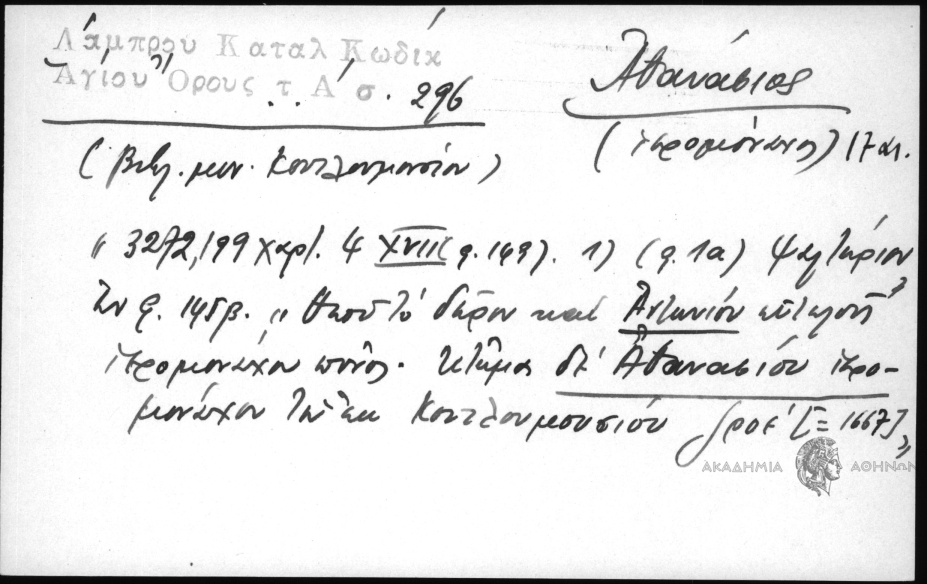 Λάμπρου Καταλ Κωδίκ
Ἁγίου Ὄρους τ. Α΄ σ. 296
Ἀθανάσιος
(ἱερομόναχος) 17 αι.
(Βιβλ. μον. Κουτλουμουσίου)
" 3272,199 χαρτ. 4 XVII (φ. 149). 1) (φ. 1α) Ψαλτήριον
Ἐν φ. 145β. " Θεοῦ τὸ δῶρον καὶ Ἀντωνίου εὐτελοῦς
ἱερομονάχου πόνος. Κτῆμα δὲ Ἀθανασίου ἱερο-
μονάχου τοῦ ἐκ Κουτλουμουσίου ͵ζροε΄ [= 1667] "
ΑΚΑΔΗΜΙΑ ΑΘΗΝΩΝ